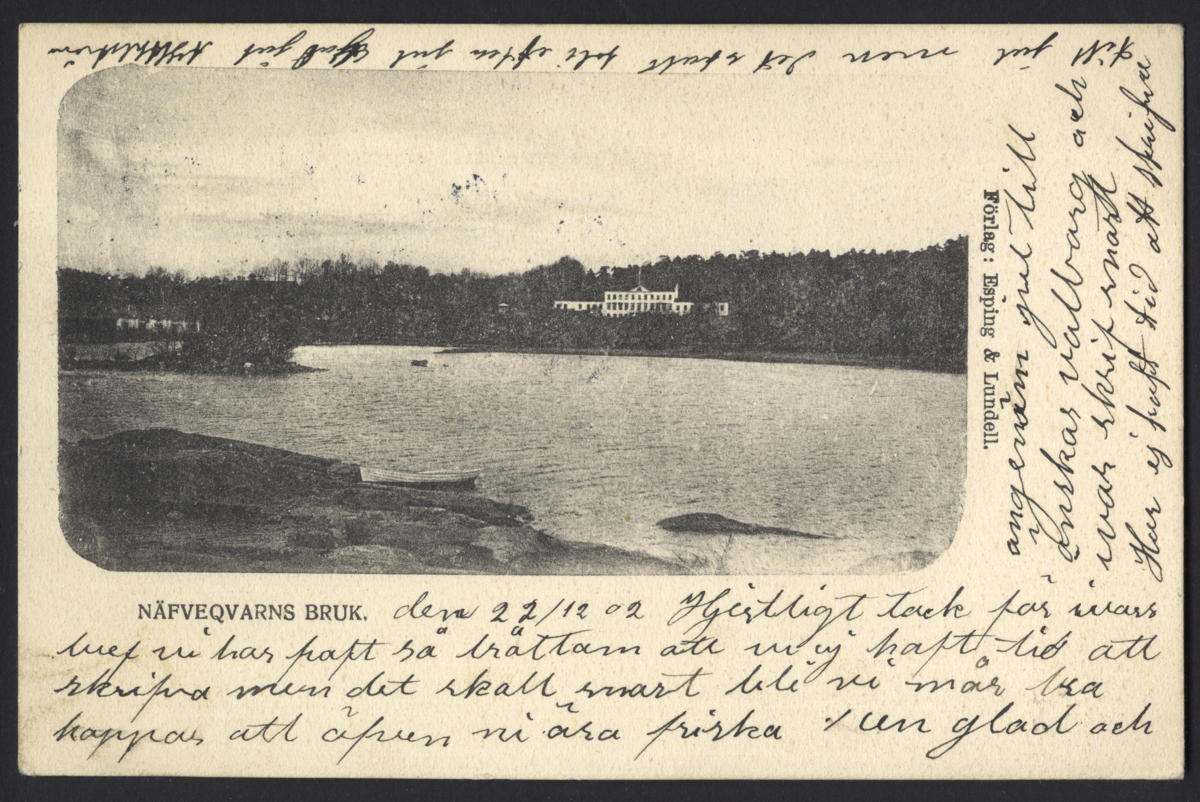 NÄFVEQVARNS BRUK. den 22/12 02 Hjertligt tack för ivars
bref vi har haft så bråttom att vi ej haft tid att
skrifva men det skall snart bli vi mår bra
hoppas att äfven ni ära friska // en glad och
angenäm jul till
önskas valborg och
ivar skrif snart
Har ej haft tid att skrifva
till jul men det skall bli efter jul God jul
Förlag: Esping & Lundell.